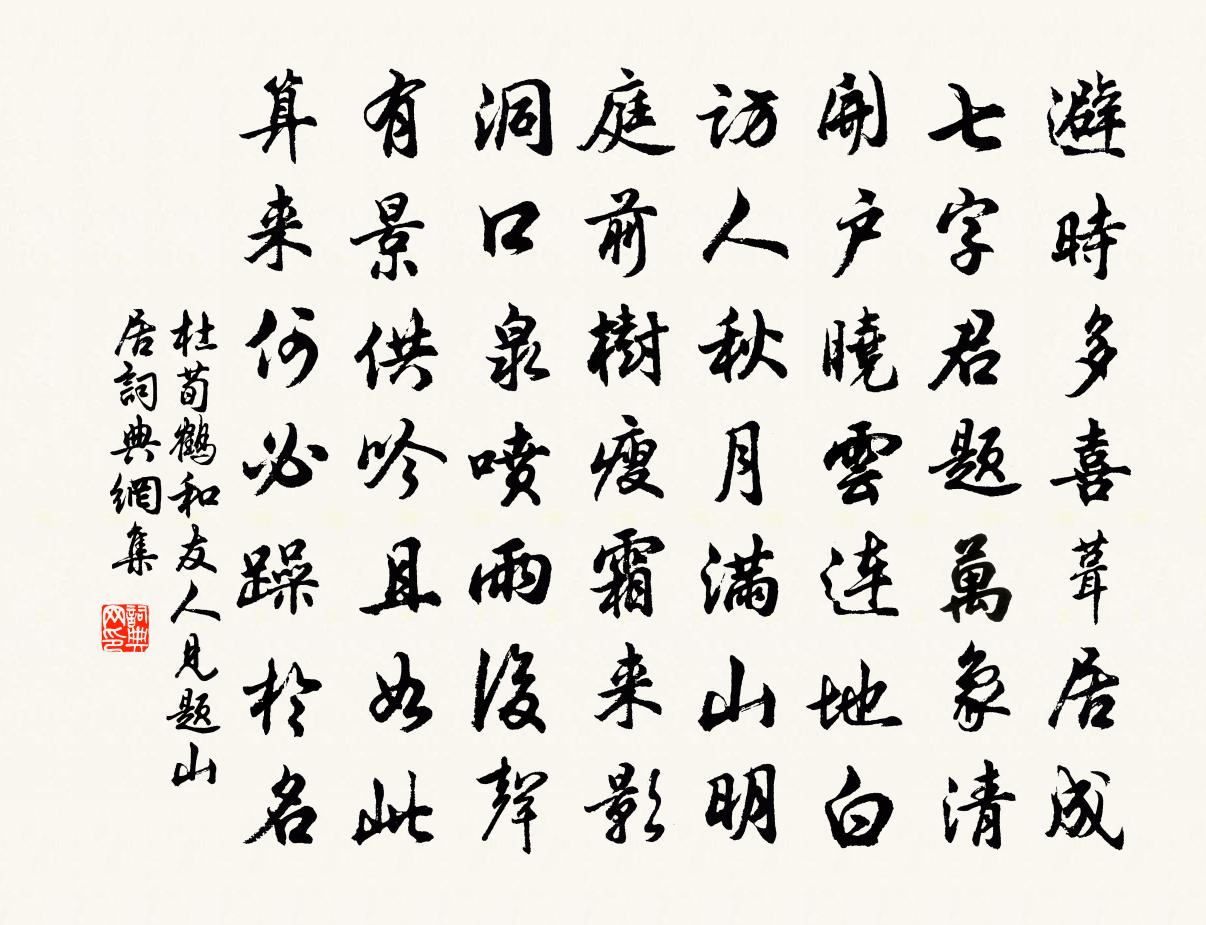 避時多喜葺居成
七字君題萬象清
開戶曉雲連地白
訪人秋月滿山明
庭前樹瘦霜来影
洞口泉噴雨後聲
有景供吟且如此
算来何必躁於名
杜荀鶴和友人見題山
居詞典網集
詞典
网印